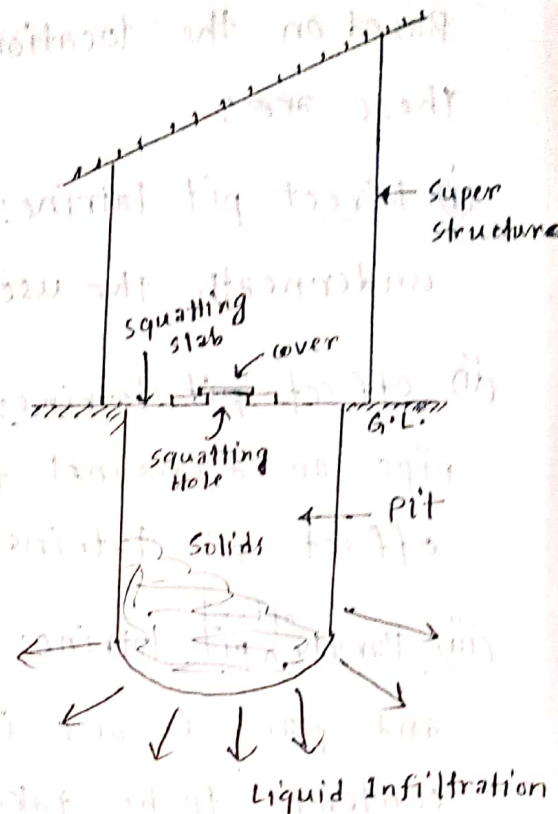 Super
structure
squatting
slab
cover
G.L.
squatting
Hole
Pit
Solids
Liquid Infiltration